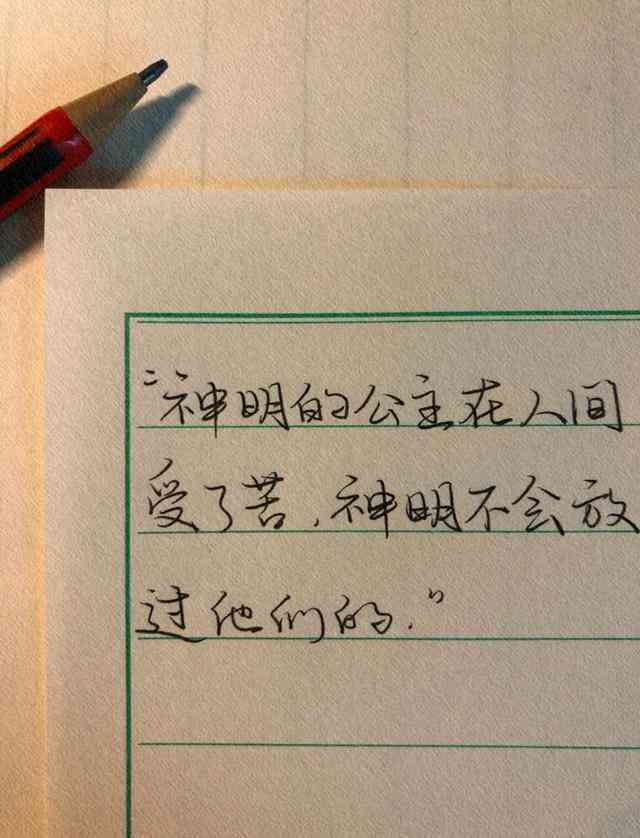 “神明的公主在人间
受了苦，神明不会放
过他们的.”